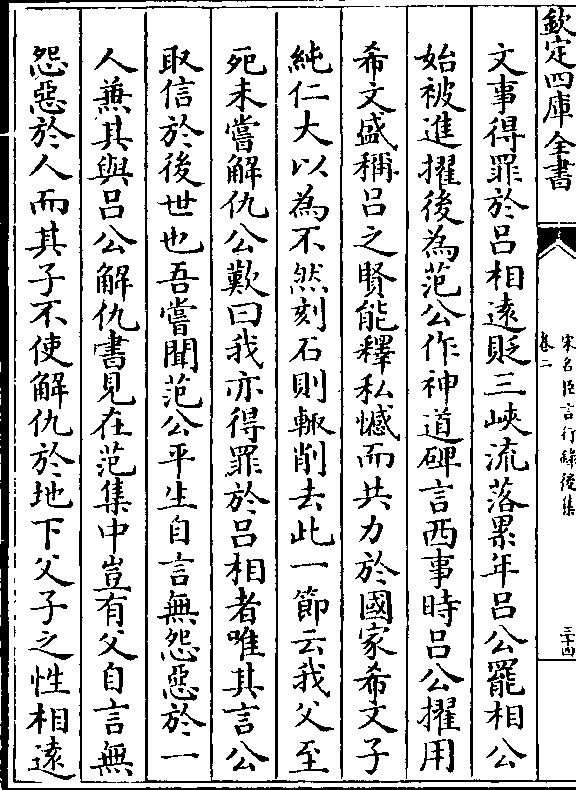 欽定四庫全書
宋名臣言行録後集
卷二
三十四
文事得罪於吕相遠貶三峽流落累年吕公罷相公
始被進擢後為范公作神道碑言西事時吕公擢用
希文盛稱吕之賢能釋私憾而共力於國家希文子
純仁大以為不然刻石則輙削去此一節云我父至
死未嘗解仇公歎曰我亦得罪於吕相者唯其言公
取信於後世也吾嘗聞范公平生自言無怨惡於一
人兼其與吕公解仇書見在范集中豈有父自言無
怨惡於人而其子不使解仇於地下父子之性相遠